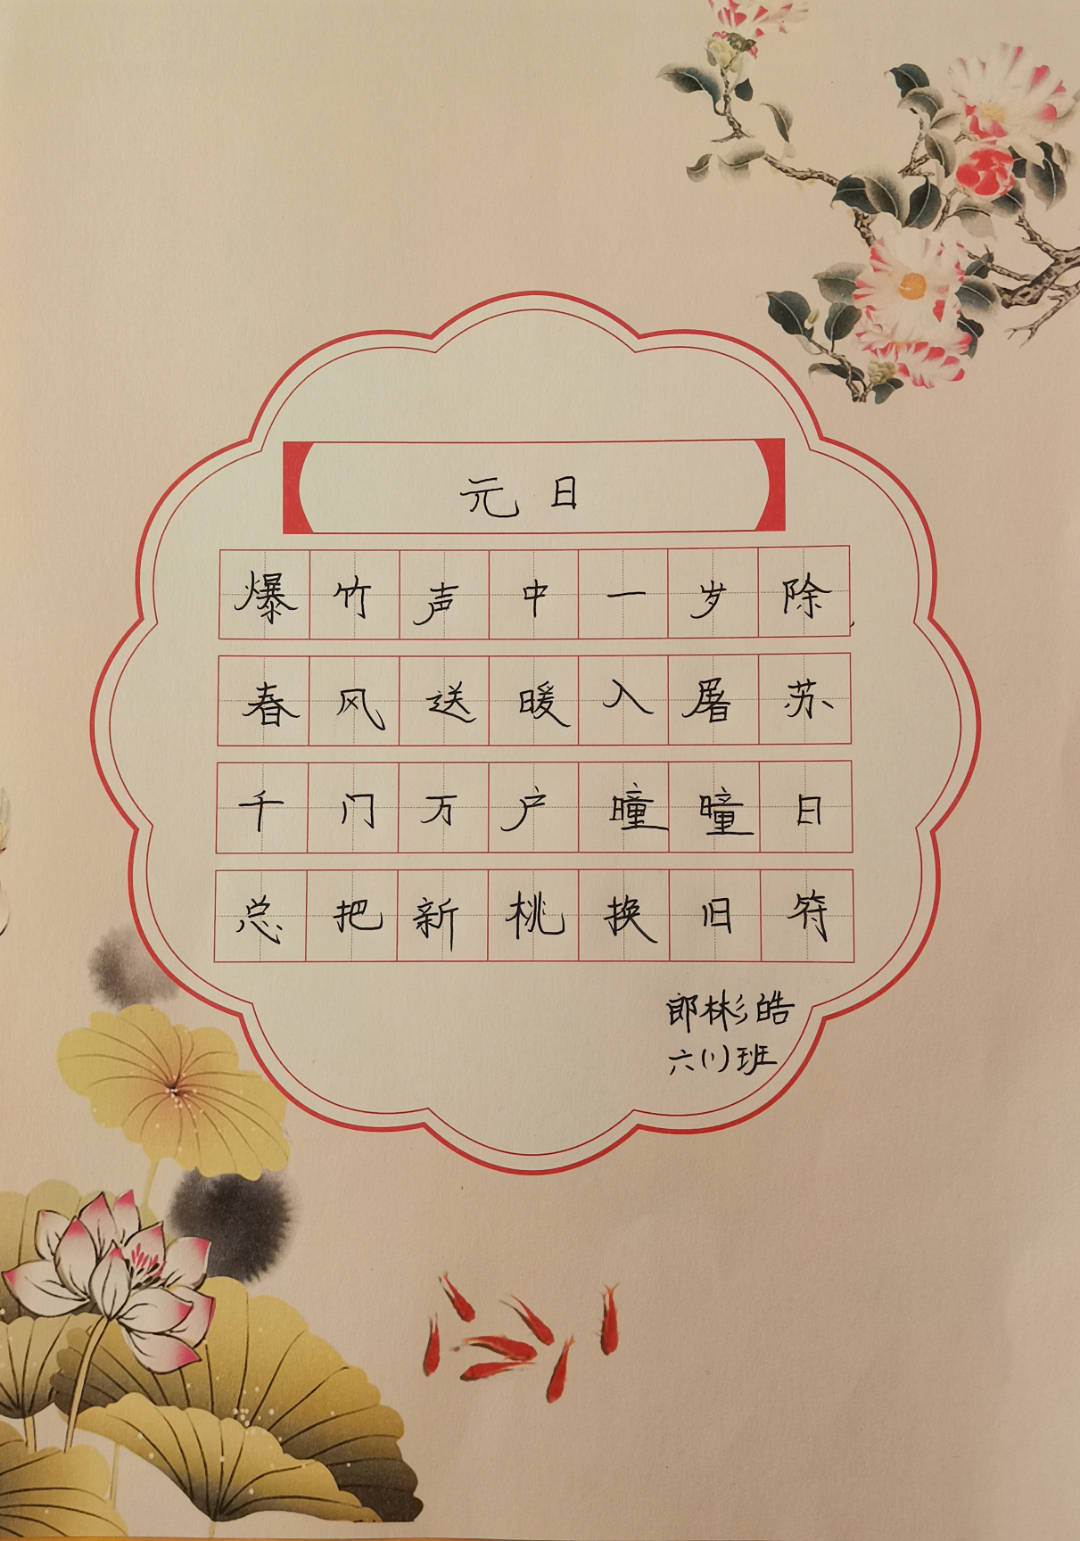 元日
爆竹声中一岁除
春风送暖入屠苏
千门万户曈曈日
总把新桃换旧符
郎彬皓
六(1)班